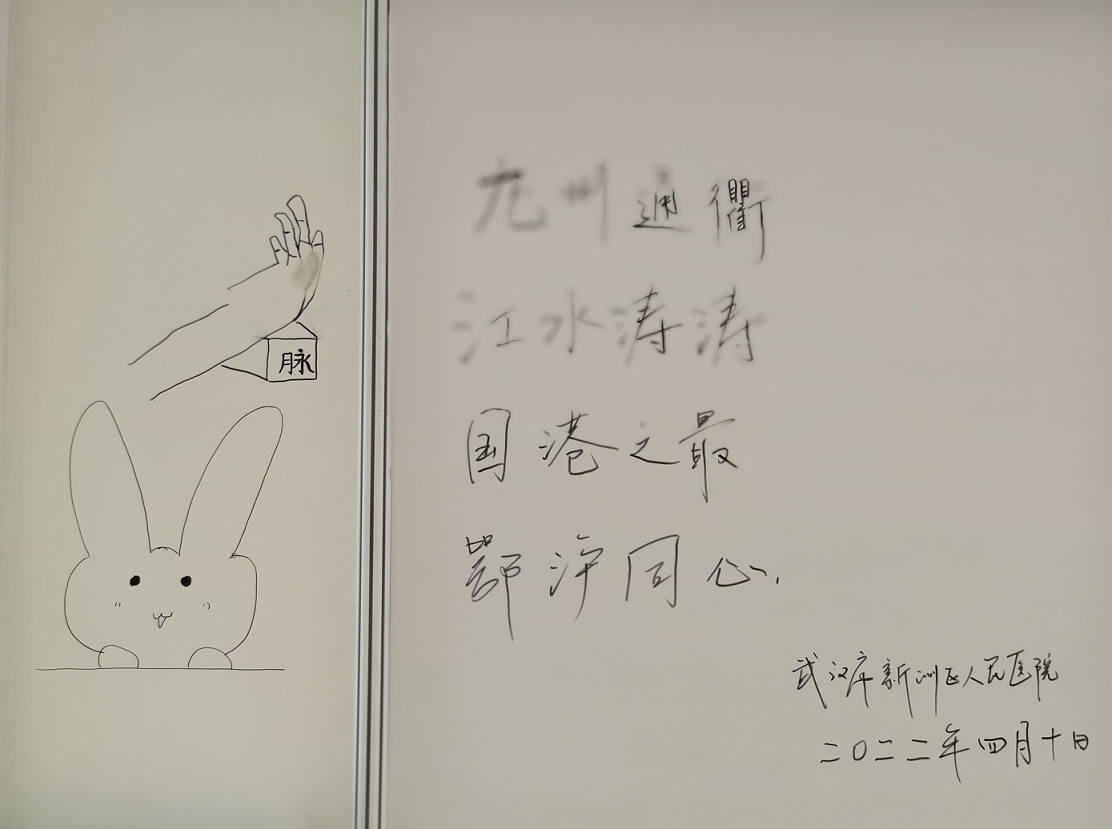 脉
九州通衢
江水涛涛
国港之最
鄂沪同心.
武汉市新洲区人民医院
二〇二二年四月十日